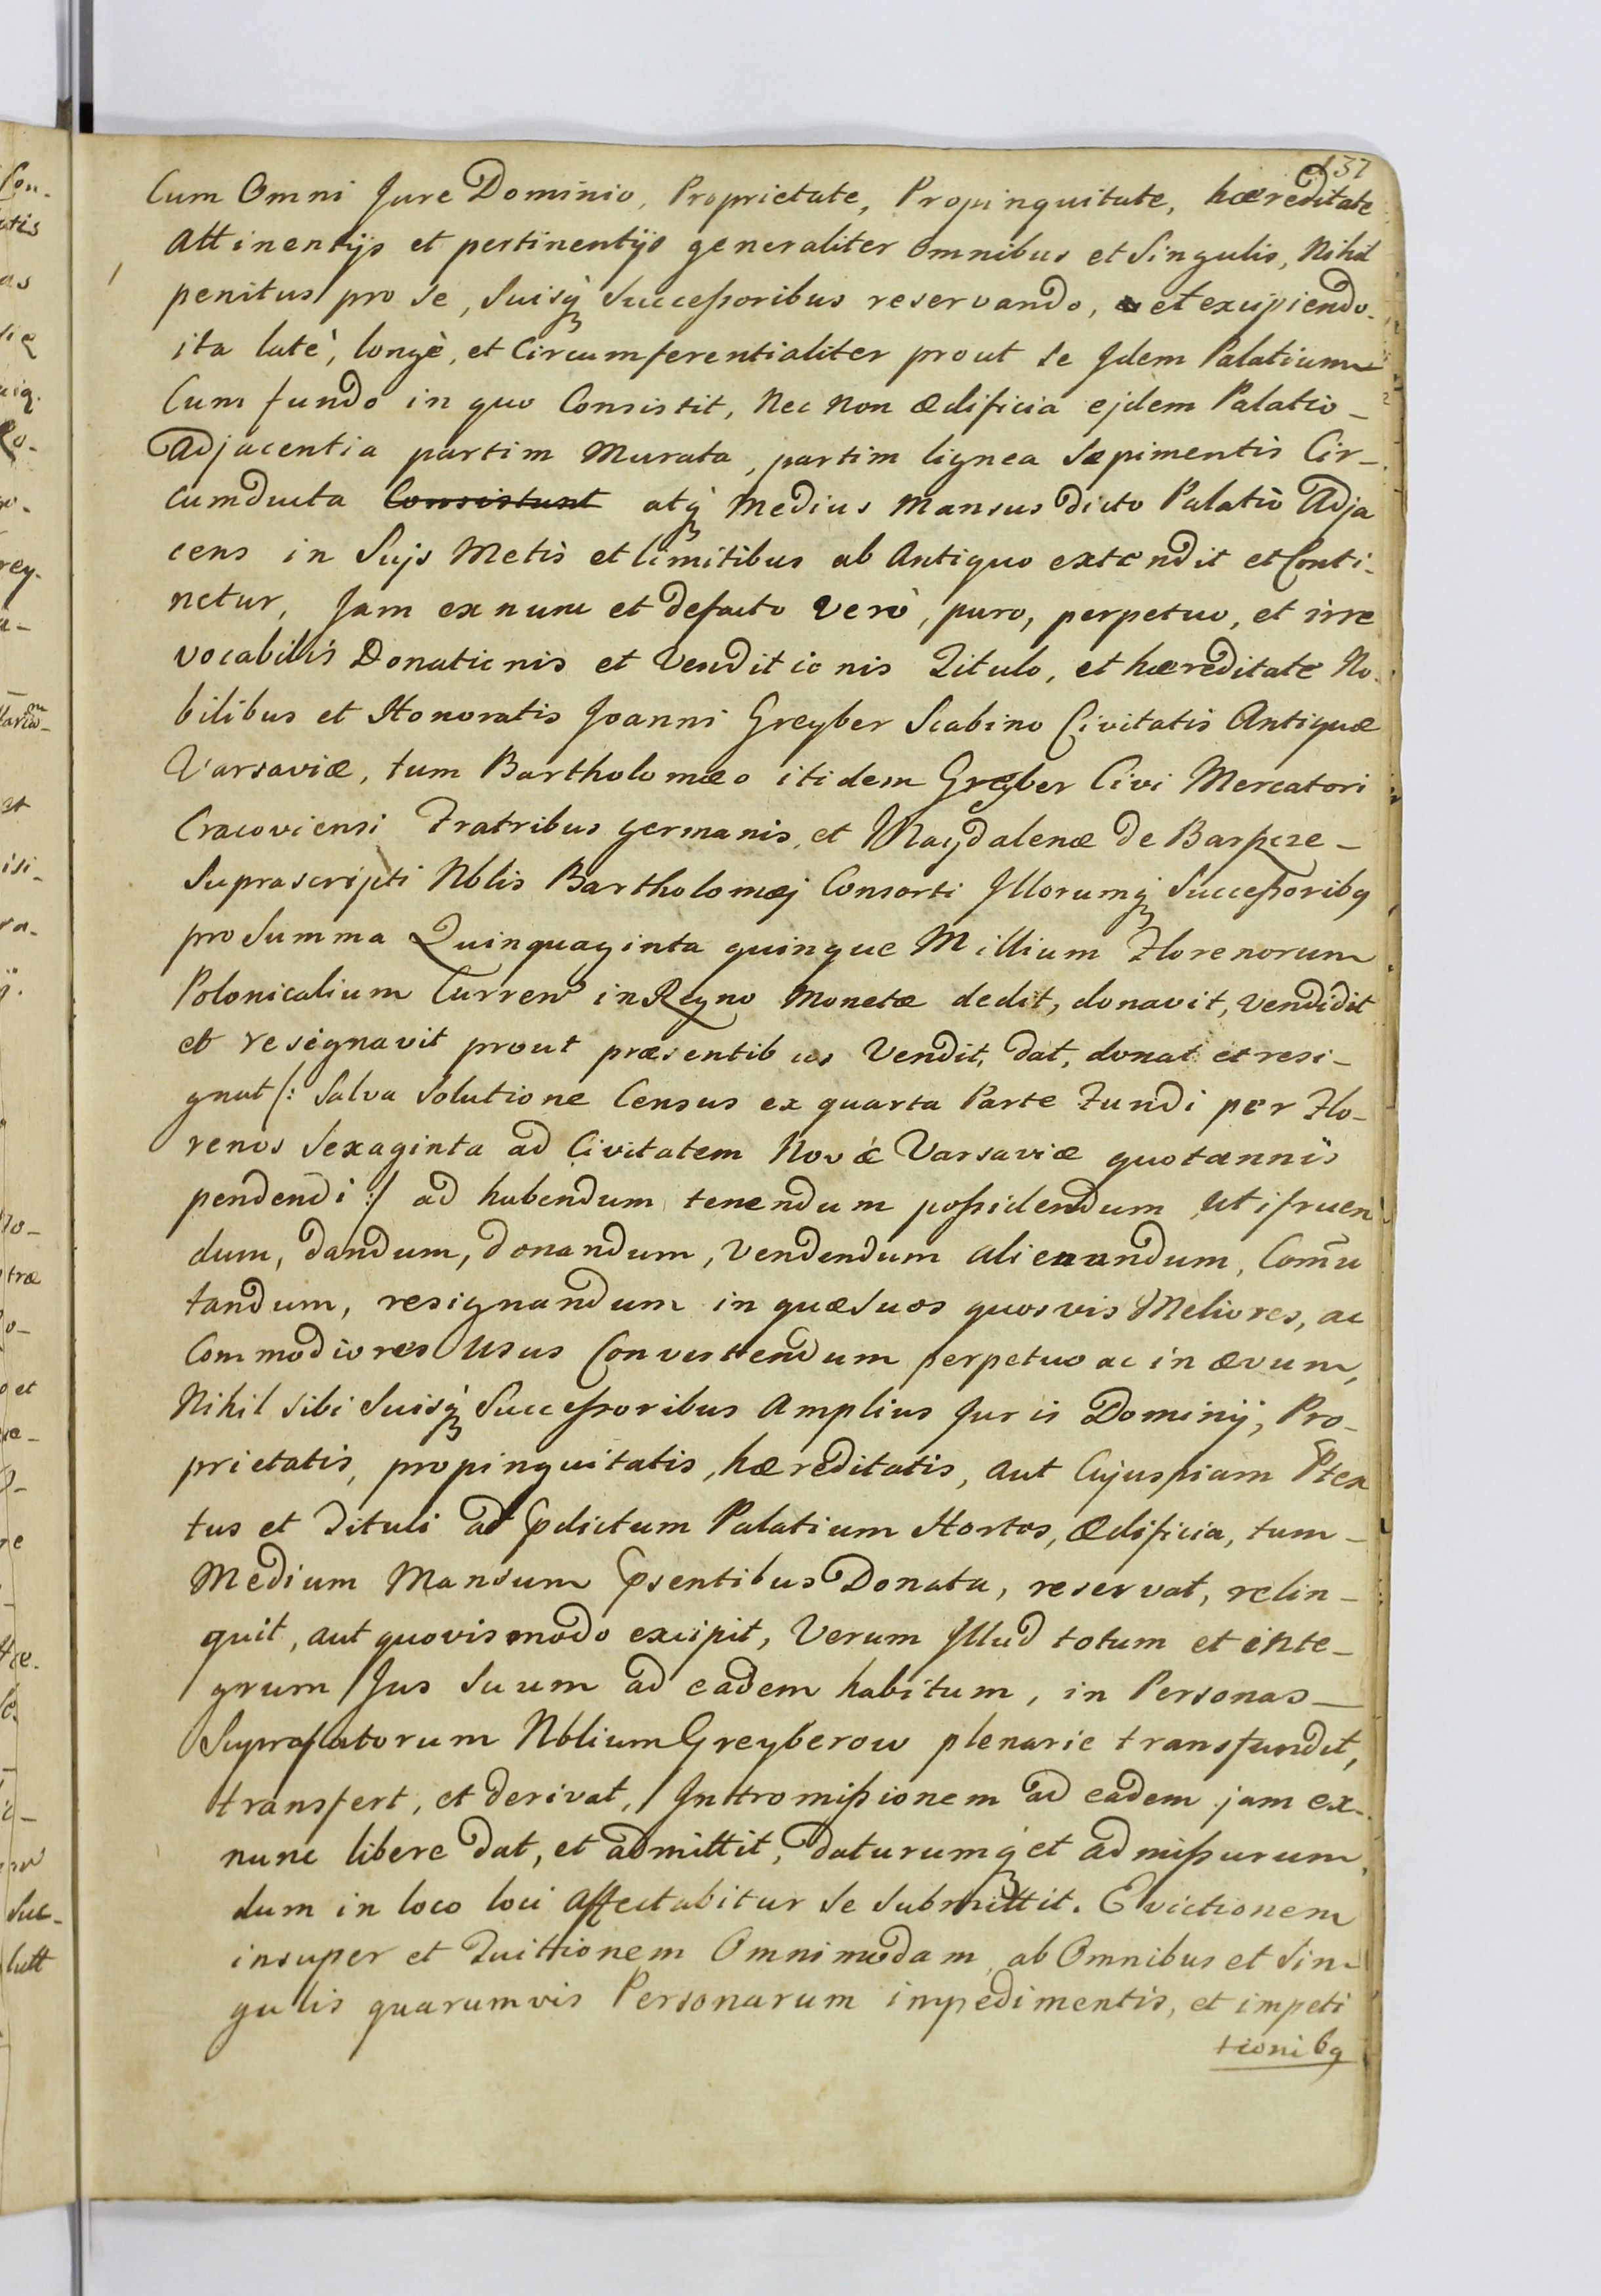 137
Cum Omni Jure Dominio, Proprietate, Propinquitate, hæreditate
Attinentijs et pertinentijs generaliter omnibus et Singulis, Nihil
penitus pro se, Suisq; Successoribus reservando, et excipiendo
ita latè, longè, et Circumferentialiter prout se Jdem Palatium
Cum fundo in quo Consistit, Nec non ædificia ejdem Palatio_
Adjacentia partim Murata, partim lignea Sæpimentis Cir_
cumducta Consistunt atq; Medius Mansus dicto Palatio Adja
cens in Suijs Metis et limitibus ab Antiquo extendit et Conti_
netur, Jam ex nunc et defacto Verò, puro, perpetuo, et irre
vocabilis Donationis et Venditionis Titulo, et hæreditate No_
bilibus et Honoratis Joanni Greyber Scabino Civitatis Antiquæ
Varsaviæ, tum Bartholomæo itidem Greyber Civi Mercatori
Cracoviensi Fratribus germanis, et Magdalenæ de Barszcze_
Suprascripti Nblis Bartholomæj Consorti Jllorumq; Successoribq
pro Summa Quinquaginta quinque Millium Florenorum
Polonicalium Curren in Regno Monetæ dedit, donavit, vendidit
et resignavit prout præsentibus Vendit, dat, donat et resi_
gnat /: Salva Solutione Census ex quarta Parte Fundi per Flo_
renos Sexaginta ad Civitatem Novæ Varsaviæ quotannis
pendendi :/ ad habendum tenendum possidendum utifruen
dum, dandum, donandum, vendendum alienandum, Com̄u
tandum, resignandum in quæ Suos quosvis Meliores, ac
Commodiores Usus Convertendum perpetuo ac in ævum,
Nihil sibi Suisq; Successoribus Amplius Juris Dominij, Pro_
prietatis, propinquitatis, hæreditatis, aut Cujuspiam Ptex
tus et Tituli ad pdictum Palatium Hortos, Ædificia, tum_
Medium Mansum psentibus Donata, reservat, relin_
quit, aut quovis modo excipit, Verum Jllud totum et inte_
grum Jus Suum ad eadem habitum, in Personas_
Supraflatorum Nblium Greyberow plenarie transfundit,
transfert, et derivat, Jntromissionem ad eadem jam ex_
nunc libere dat, et admittit, daturumq; et admissurum,
dum in loco loci Affectabitur se submittit. Evictionem
insuper et Tuitionem Omnimodam, ab Omnibus et Sin_
gulis quarumvis Personarum impedimentis, et impeti
tionibq